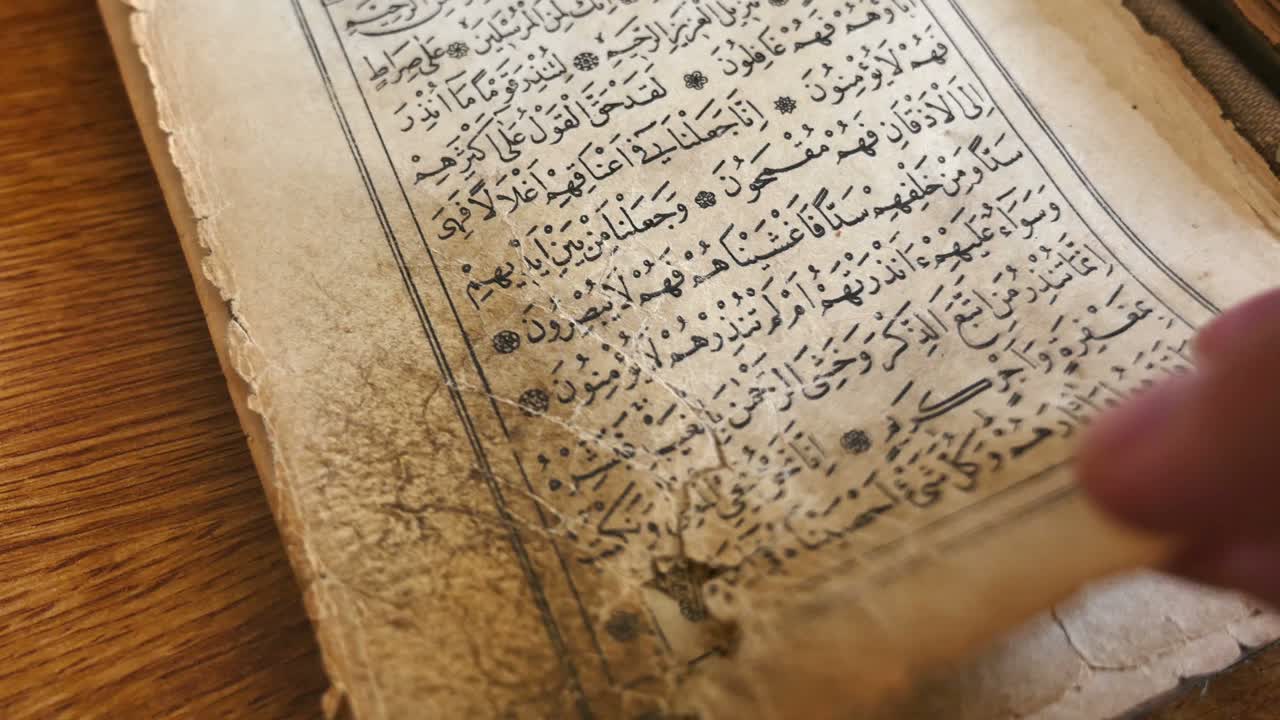 لَمِنَ الْمُرْسَلِينَ ۞ عَلَى صِرَاطٍ
تَنْزِيلَ الْعَزِيزِ الرَّحِيمِ ۞ لِتُنْذِرَ قَوْمًا مَا اُنْذِرَ
فَهُمْ غَافِلُونَ ۞ لَقَدْ حَقَّ الْقَوْلُ عَلَى اَكْثَرِهِمْ
فَهُمْ لَا يُؤْمِنُونَ ۞ اِنَّا جَعَلْنَا فِي اَعْنَاقِهِمْ اَغْلَالًا فَهِيَ
اِلَى الْاَذْقَانِ فَهُمْ مُقْمَحُونَ ۞ وَجَعَلْنَا مِنْ بَيْنِ اَيْدِيهِمْ
سَدًّا وَمِنْ خَلْفِهِمْ سَدًّا فَاَغْشَيْنَاهُمْ فَهُمْ لَا يُبْصِرُونَ ۞
وَسَوَاءٌ عَلَيْهِمْ ءَاَنْذَرْتَهُمْ اَمْ لَمْ تُنْذِرْهُمْ لَا يُؤْمِنُونَ ۞
اِنَّمَا تُنْذِرُ مَنِ اتَّبَعَ الذِّكْرَ وَخَشِيَ الرَّحْمٰنَ بِالْغَيْبِ فَبَشِّرْهُ
بِمَغْفِرَةٍ وَاَجْرٍ كَرِيمٍ ۞ اِنَّا نَحْنُ نُحْيِ وَنَكْتُبُ
وَاٰثَارَهُمْ وَكُلَّ شَيْءٍ اَحْصَيْنَاهُ